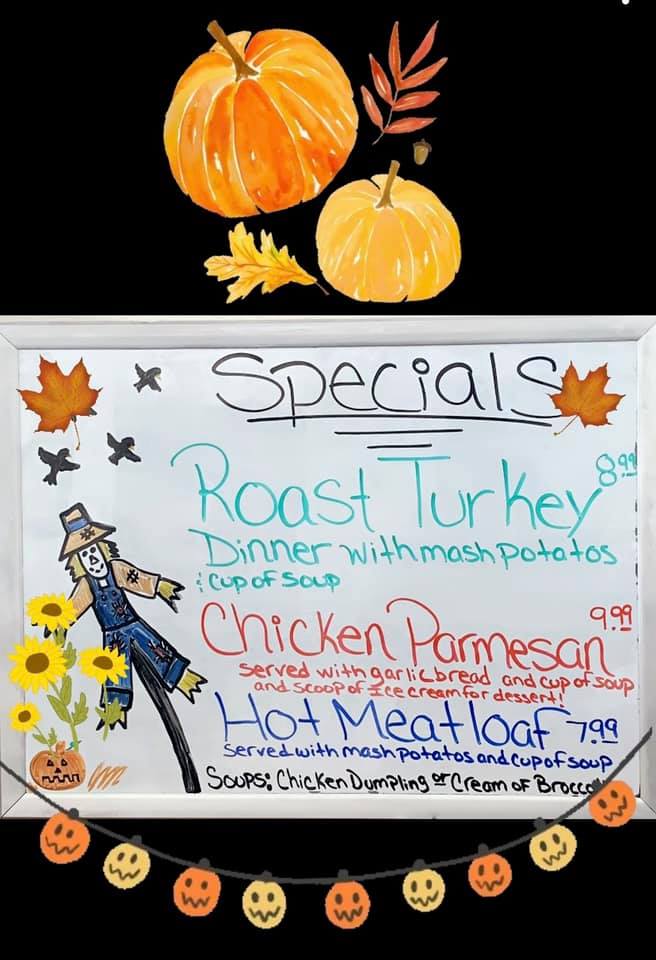 Specials
Roast Turkey 8.99
Dinner with mash potatos
& cup of soup
Chicken Parmesan 9.99
served with garlic bread and cup of soup
and scoop of Ice cream for dessert!
Hot Meatloaf 7.99
served with mash potatos and cup of soup
Soups: Chicken Dumpling or Cream of